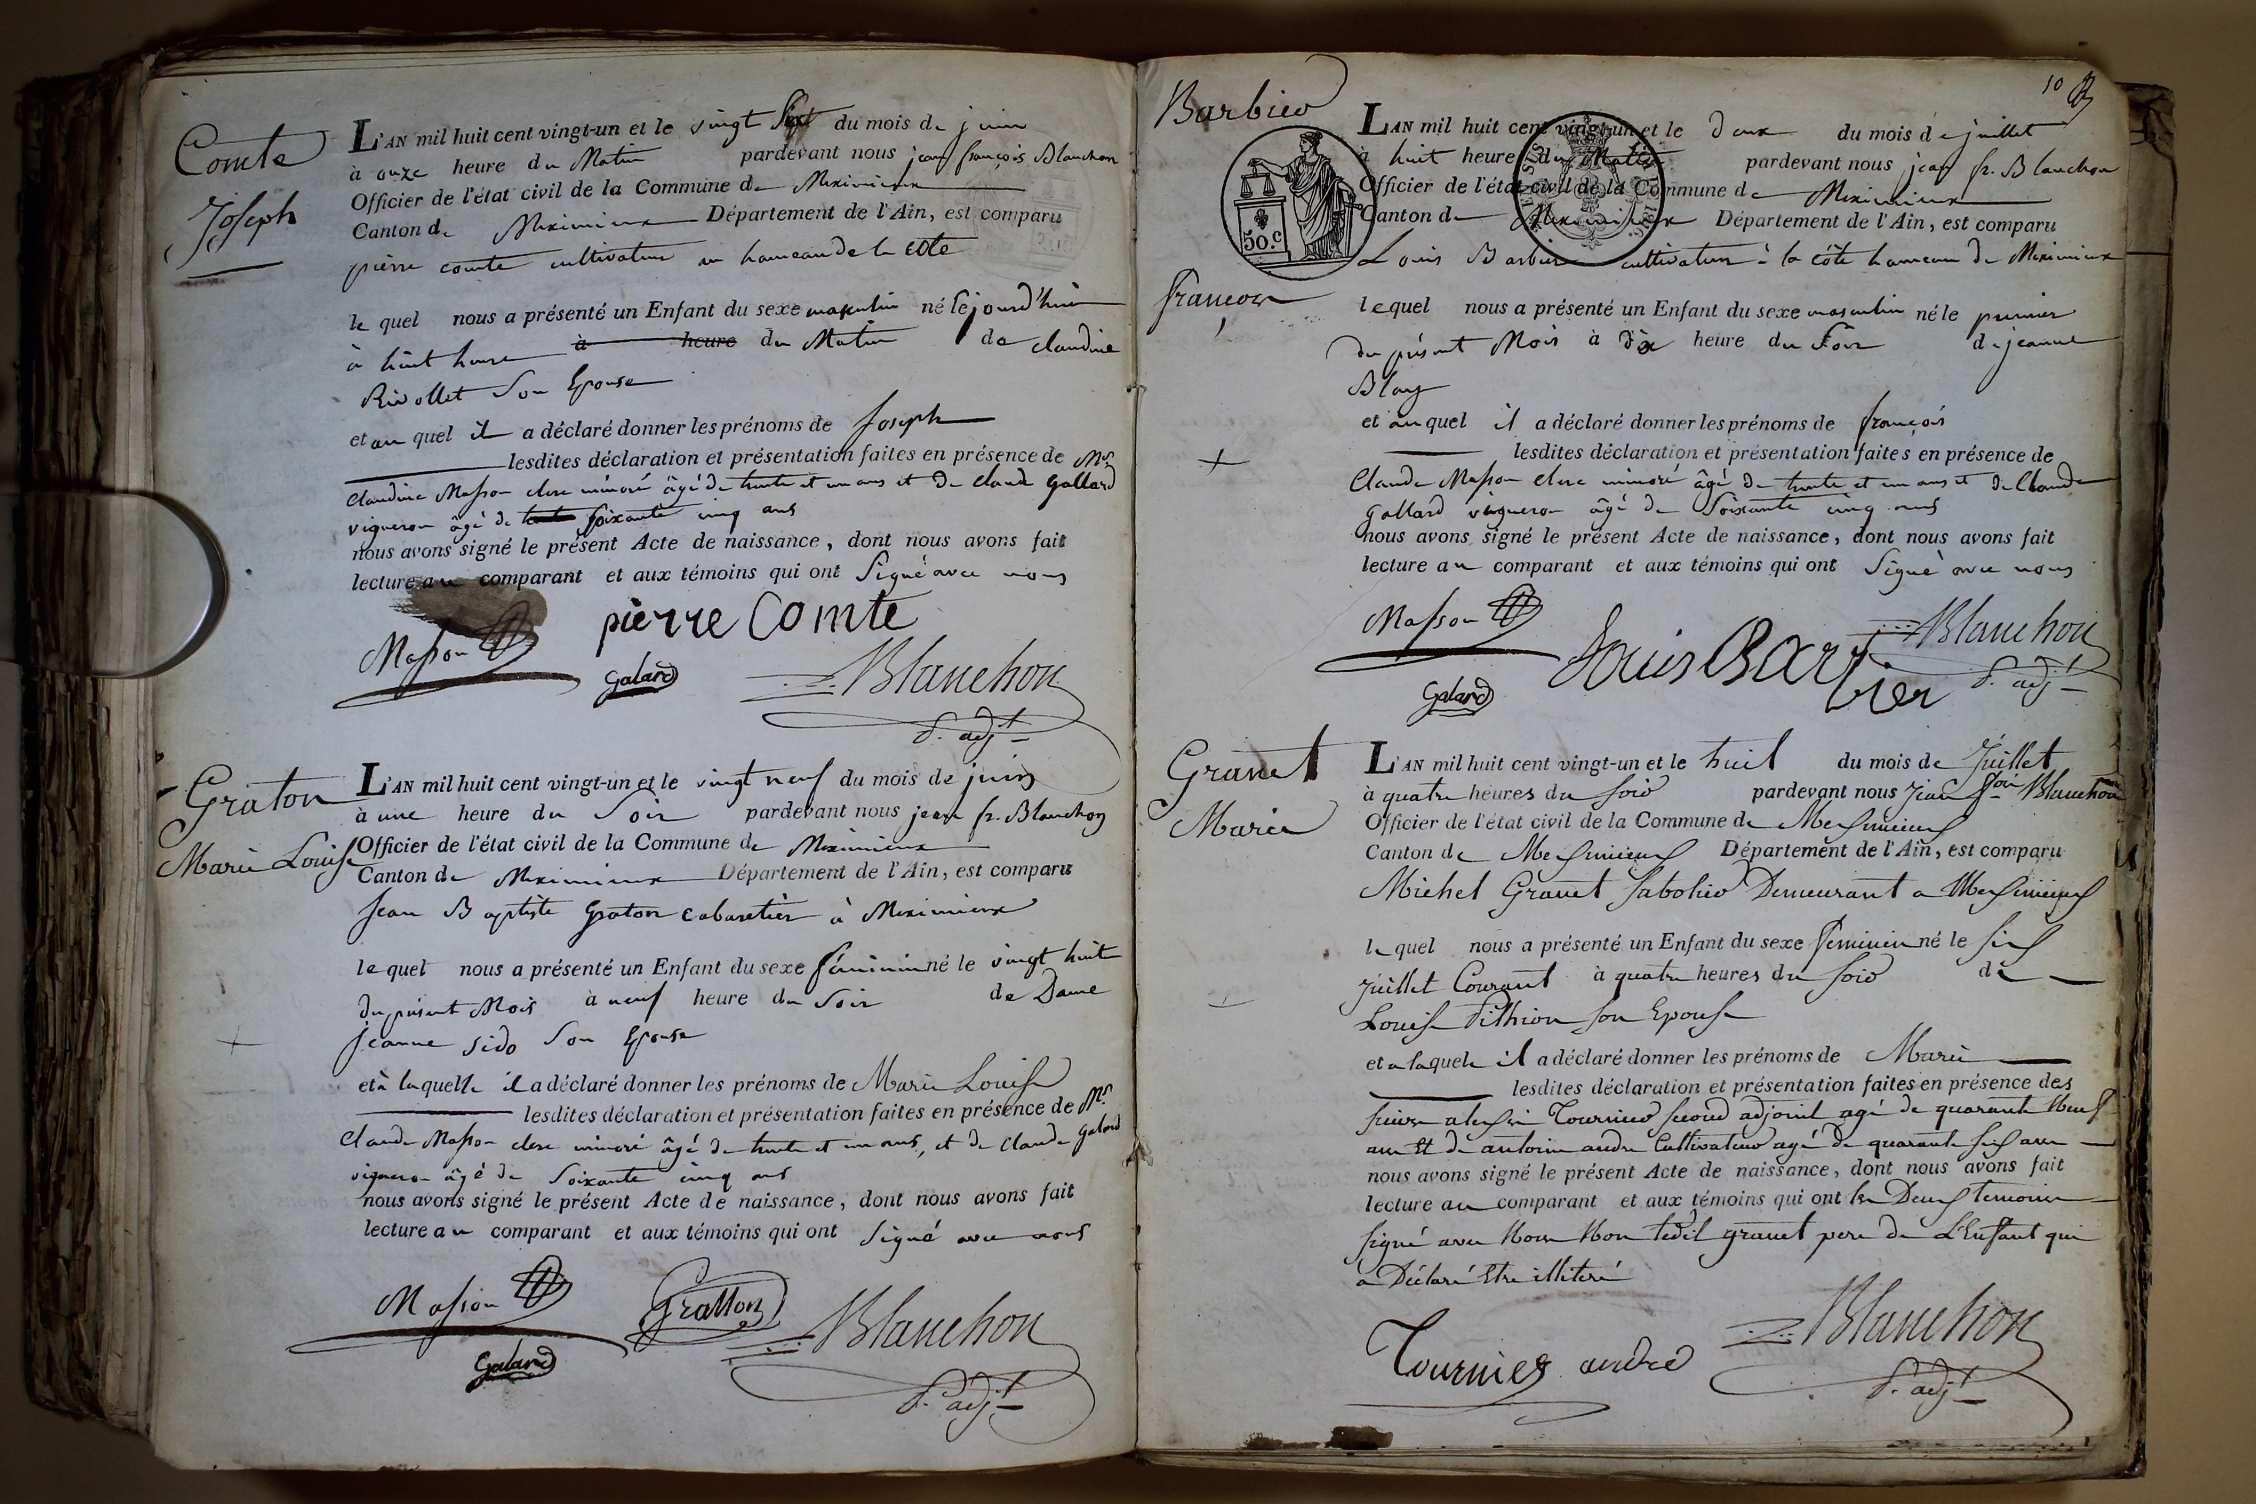 Comte
Joseph
L'AN mil huit cent vingt-un et le vingt Sept du mois de juin
à onze heure du Matin pardevant nous jean françois Blanchon
Officier de l'état civil de la Commune de Meximieux
Canton de Meximieux Département de l'Ain, est comparu
pierre comte cultivateur au hameau de la côte
le quel nous a présenté un Enfant du sexe masculin né le jourd'hui
à huit heure à heure du Matin de claudine
Rivollet Son Epouse
et au quel il a déclaré donner les prénoms de Joseph
lesdites déclaration et présentation faites en présence de Mr
Claudine Masson clerc minoré âgé de trente et un ans et de claude gallard
vigneron âgé de soixante cinq ans
nous avons signé le présent Acte de naissance, dont nous avons fait
lecture au comparant et aux témoins qui ont Signé avec nous
Masson pierre Comte
Galard Blanchon
P. adjt
Graton
Marie Louise
L'AN mil huit cent vingt-un et le vingt neuf du mois de juin
à une heure du Soir pardevant nous jean fr. Blanchon
Officier de l'état civil de la Commune de Meximieux
Canton de Meximieux Département de l'Ain, est comparu
Jean Baptiste Graton cabaretier à Meximieux
le quel nous a présenté un Enfant du sexe féminin né le vingt huit
du présent Mois à neuf heure du Soir de Dame
jeanne Sido Son Epouse
et à laquelle il a déclaré donner les prénoms de Marie Louise
lesdites déclaration et présentation faites en présence de Mr
Claude Masson clerc minoré âgé de trente et un ans, et de Claude Galard
vigneron âgé de Soixante cinq ans
nous avons signé le présent Acte de naissance, dont nous avons fait
lecture au comparant et aux témoins qui ont Signé avec nous
Masson Gratton Blanchon
Galard
P. adjt
10
Barbier
françois
50.c
L'AN mil huit cent vingt-un et le deux du mois de juillet
à huit heure du Matin pardevant nous jean fr. Blanchon
Officier de l'état civil de la Commune de Meximieux
Canton de Meximieux Département de l'Ain, est comparu
Louis Barbier cultivateur à la côte hameau de Meximieux
lequel nous a présenté un Enfant du sexe masculin né le premier
du présent Mois à dix heure du Soir de jeanne
Blay
et au quel il a déclaré donner les prénoms de françois
lesdites déclaration et présentation faites en présence de
Claude Masson clerc minoré âgé de trente et un ans et de Claude
gallard vigneron âgé de Soixante cinq ans
nous avons signé le présent Acte de naissance, dont nous avons fait
lecture au comparant et aux témoins qui ont Signé avec nous
Masson Louis Barbier Blanchon
Galard P. adjt
Granet
Marie
L'AN mil huit cent vingt-un et le huit du mois de Juillet
à quatre heures du soir pardevant nous jean fois Blanchon
Officier de l'état civil de la Commune de Meximieux
Canton de Meximieux Département de l'Ain, est comparu
Michel Granet Sabotier Demeurant a Meximieux
le quel nous a présenté un Enfant du sexe feminin né le six
juillet Courant à quatre heures du soir de
Louise Pithion son Epouse
et a laquele il a déclaré donner les prénoms de Marie
lesdites déclaration et présentation faites en présence des
Tournier second adjoint agé de quarante Neuf
ans Et de antoine andre Cultivateur agé de quarante six ans
nous avons signé le présent Acte de naissance, dont nous avons fait
lecture au comparant et aux témoins qui ont les Deux temoins
signé avec Nous Non ledit granet pere de L'Enfant qui
a Déclaré Etre illiteré
Tournier andré Blanchon
P. adjt